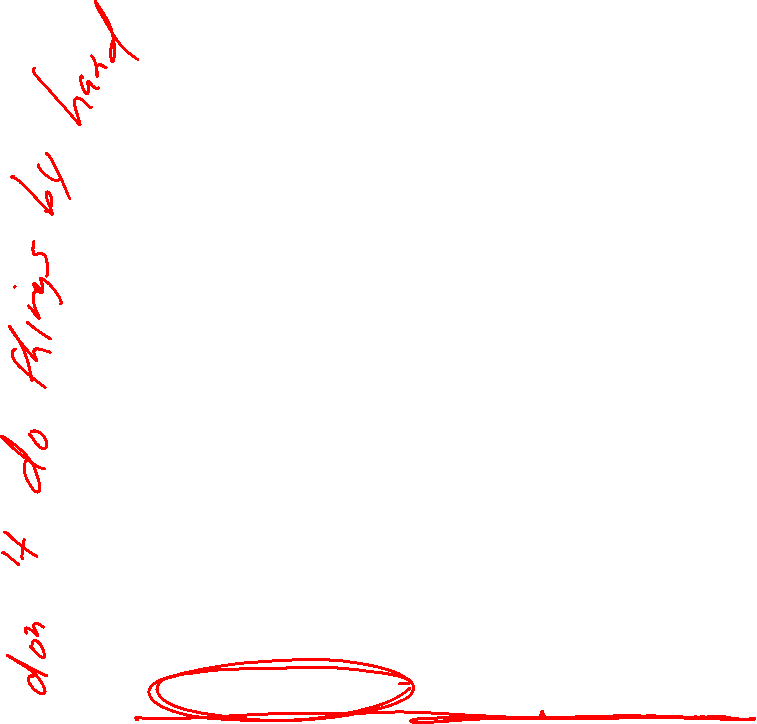 don't do things by hand